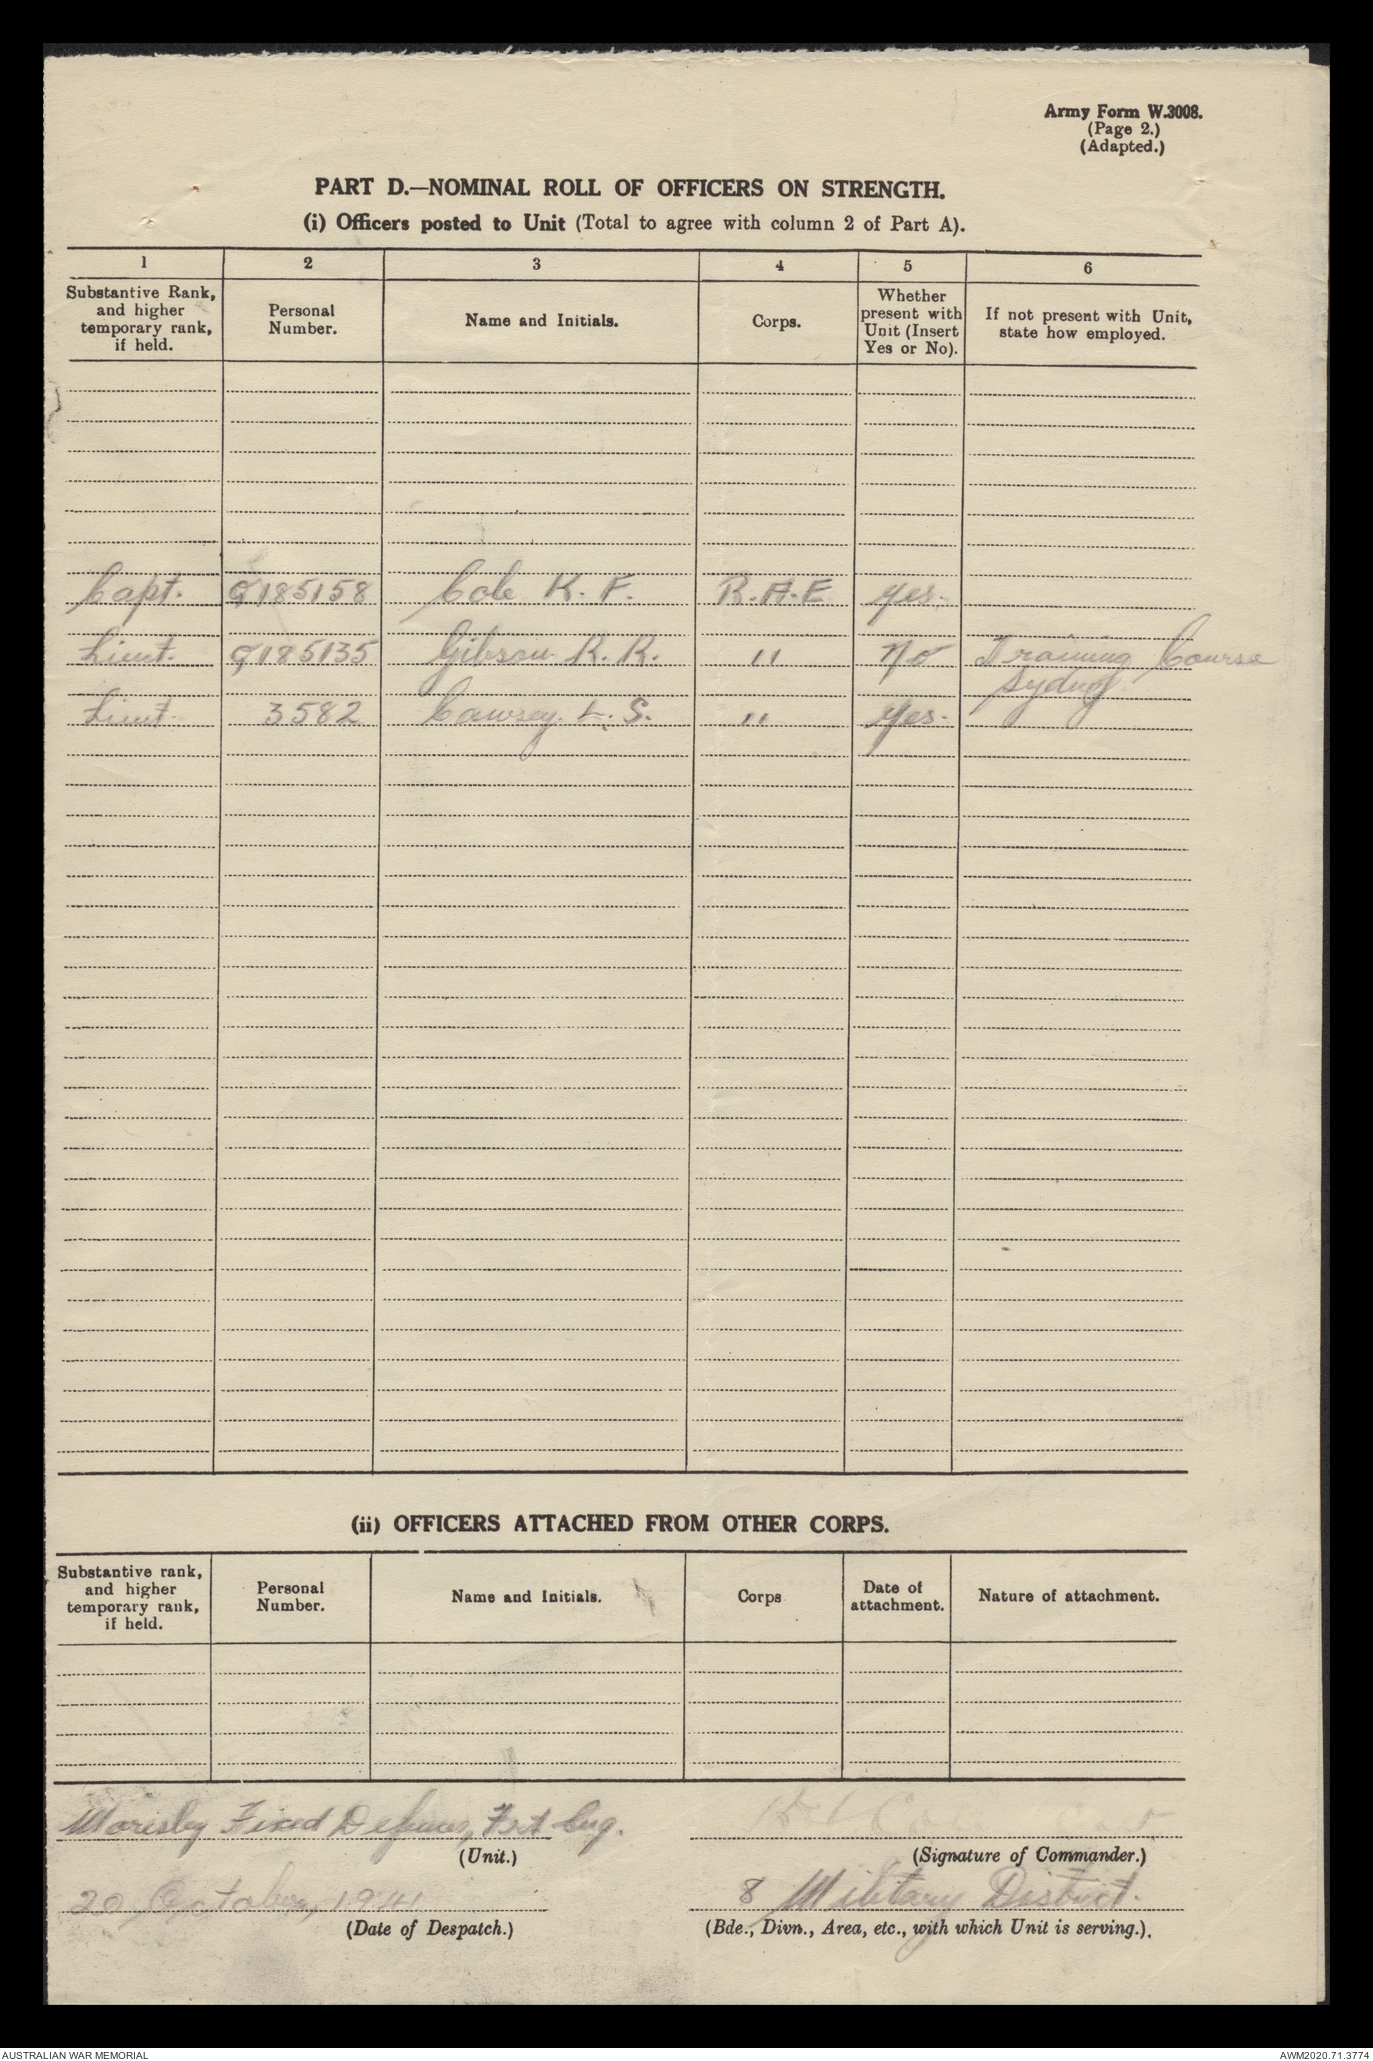 Army Form W.3008.
(Page 2.)
(Adapted.)
PART D.—NOMINAL ROLL OF OFFICERS ON STRENGTH.
(i) Officers posted to Unit (Total to agree with column 2 of Part A).
1 2 3 4 5 6
Substantive Rank, and higher temporary rank, if held. Personal Number. Name and Initials. Corps. Whether present with Unit (Insert Yes or No). If not present with Unit, state how employed.
Capt. Q185158 Cole K. F. R.A.E yes.
Lieut. Q185135 Gibson R. R. " No Training Course
Sydney
Lieut. 3582 Cawsey. L. S. " Yes.
(ii) OFFICERS ATTACHED FROM OTHER CORPS.
Substantive rank, and higher temporary rank, if held. Personal Number. Name and Initials. Corps Date of attachment. Nature of attachment.
Moresby Fixed Defences, Fort Eng.
(Unit.) (Signature of Commander.)
20 October, 1941 8 Military District.
(Date of Despatch.) (Bde., Divn., Area, etc., with which Unit is serving.).
AUSTRALIAN WAR MEMORIAL AWM2020.71.3774